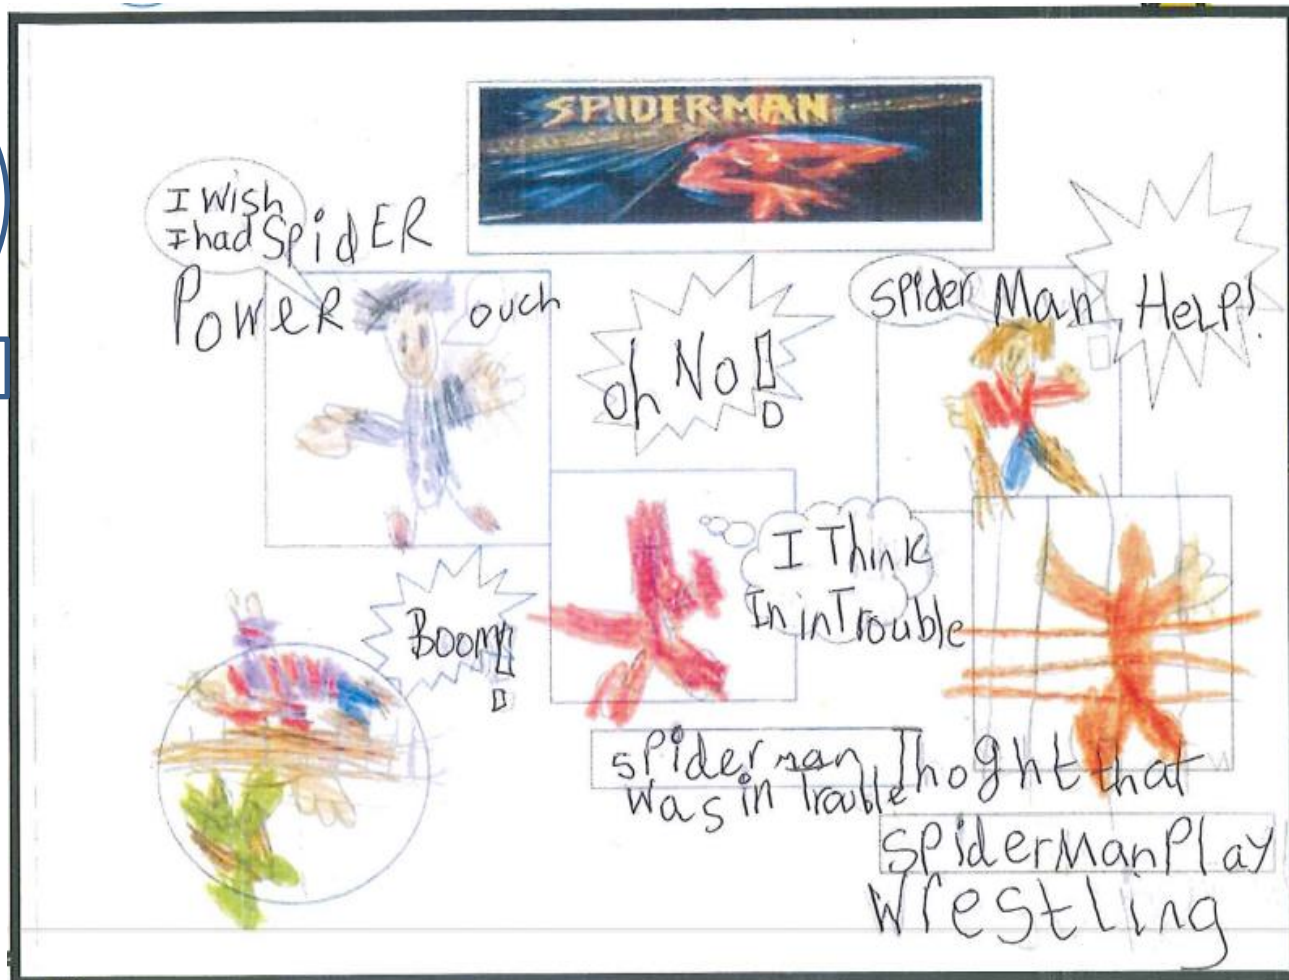 SPIDERMAN
I Wish
I had SpidER
PoweR
ouch
oh No!
Spider Man
HeLp!
I Think
In inTrouble
Boom!
spiderman Thoght that
was in Trouble
SpiderManPlay
Wrestling